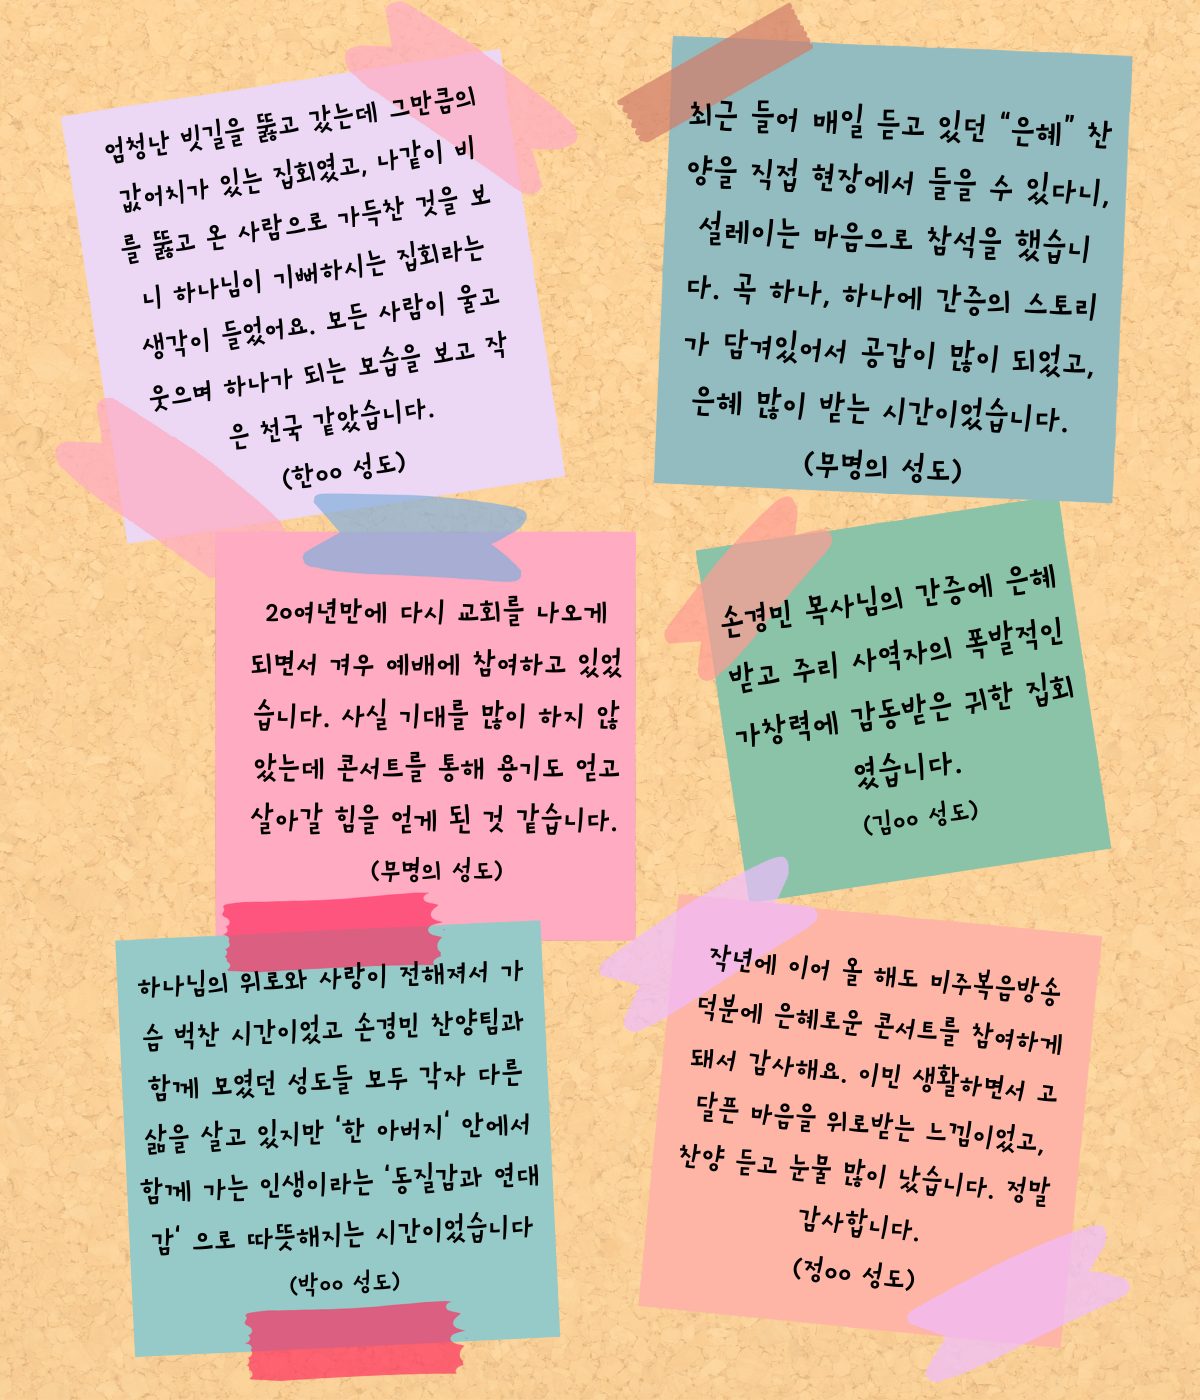 엄청난 빗길을 뚫고 갔는데 그만큼의
값어치가 있는 집회였고, 나같이 비
를 뚫고 온 사람으로 가득찬 것을 보
니 하나님이 기뻐하시는 집회라는
생각이 들었어요. 모든 사람이 울고
웃으며 하나가 되는 모습을 보고 작
은 천국 같았습니다.
(한oo 성도)
최근 들어 매일 듣고 있던 “은혜” 찬
양을 직접 현장에서 들을 수 있다니,
설레이는 마음으로 참석을 했습니
다. 곡 하나, 하나에 간증의 스토리
가 담겨있어서 공감이 많이 되었고,
은혜 많이 받는 시간이었습니다.
(무명의 성도)
20여년만에 다시 교회를 나오게
되면서 겨우 예배에 참여하고 있었
습니다. 사실 기대를 많이 하지 않
았는데 콘서트를 통해 용기도 얻고
살아갈 힘을 얻게 된 것 같습니다.
(무명의 성도)
손경민 목사님의 간증에 은혜
받고 주리 사역자의 폭발적인
가창력에 감동받은 귀한 집회
였습니다.
(김oo 성도)
하나님의 위로와 사랑이 전해져서 가
슴 벅찬 시간이었고 손경민 찬양팀과
함께 모였던 성도들 모두 각자 다른
삶을 살고 있지만 ‘한 아버지‘ 안에서
함께 가는 인생이라는 ‘동질감과 연대
감‘ 으로 따뜻해지는 시간이었습니다
(박oo 성도)
작년에 이어 올 해도 미주복음방송
덕분에 은혜로운 콘서트를 참여하게
돼서 감사해요. 이민 생활하면서 고
달픈 마음을 위로받는 느낌이었고,
찬양 듣고 눈물 많이 났습니다. 정말
감사합니다.
(정oo 성도)